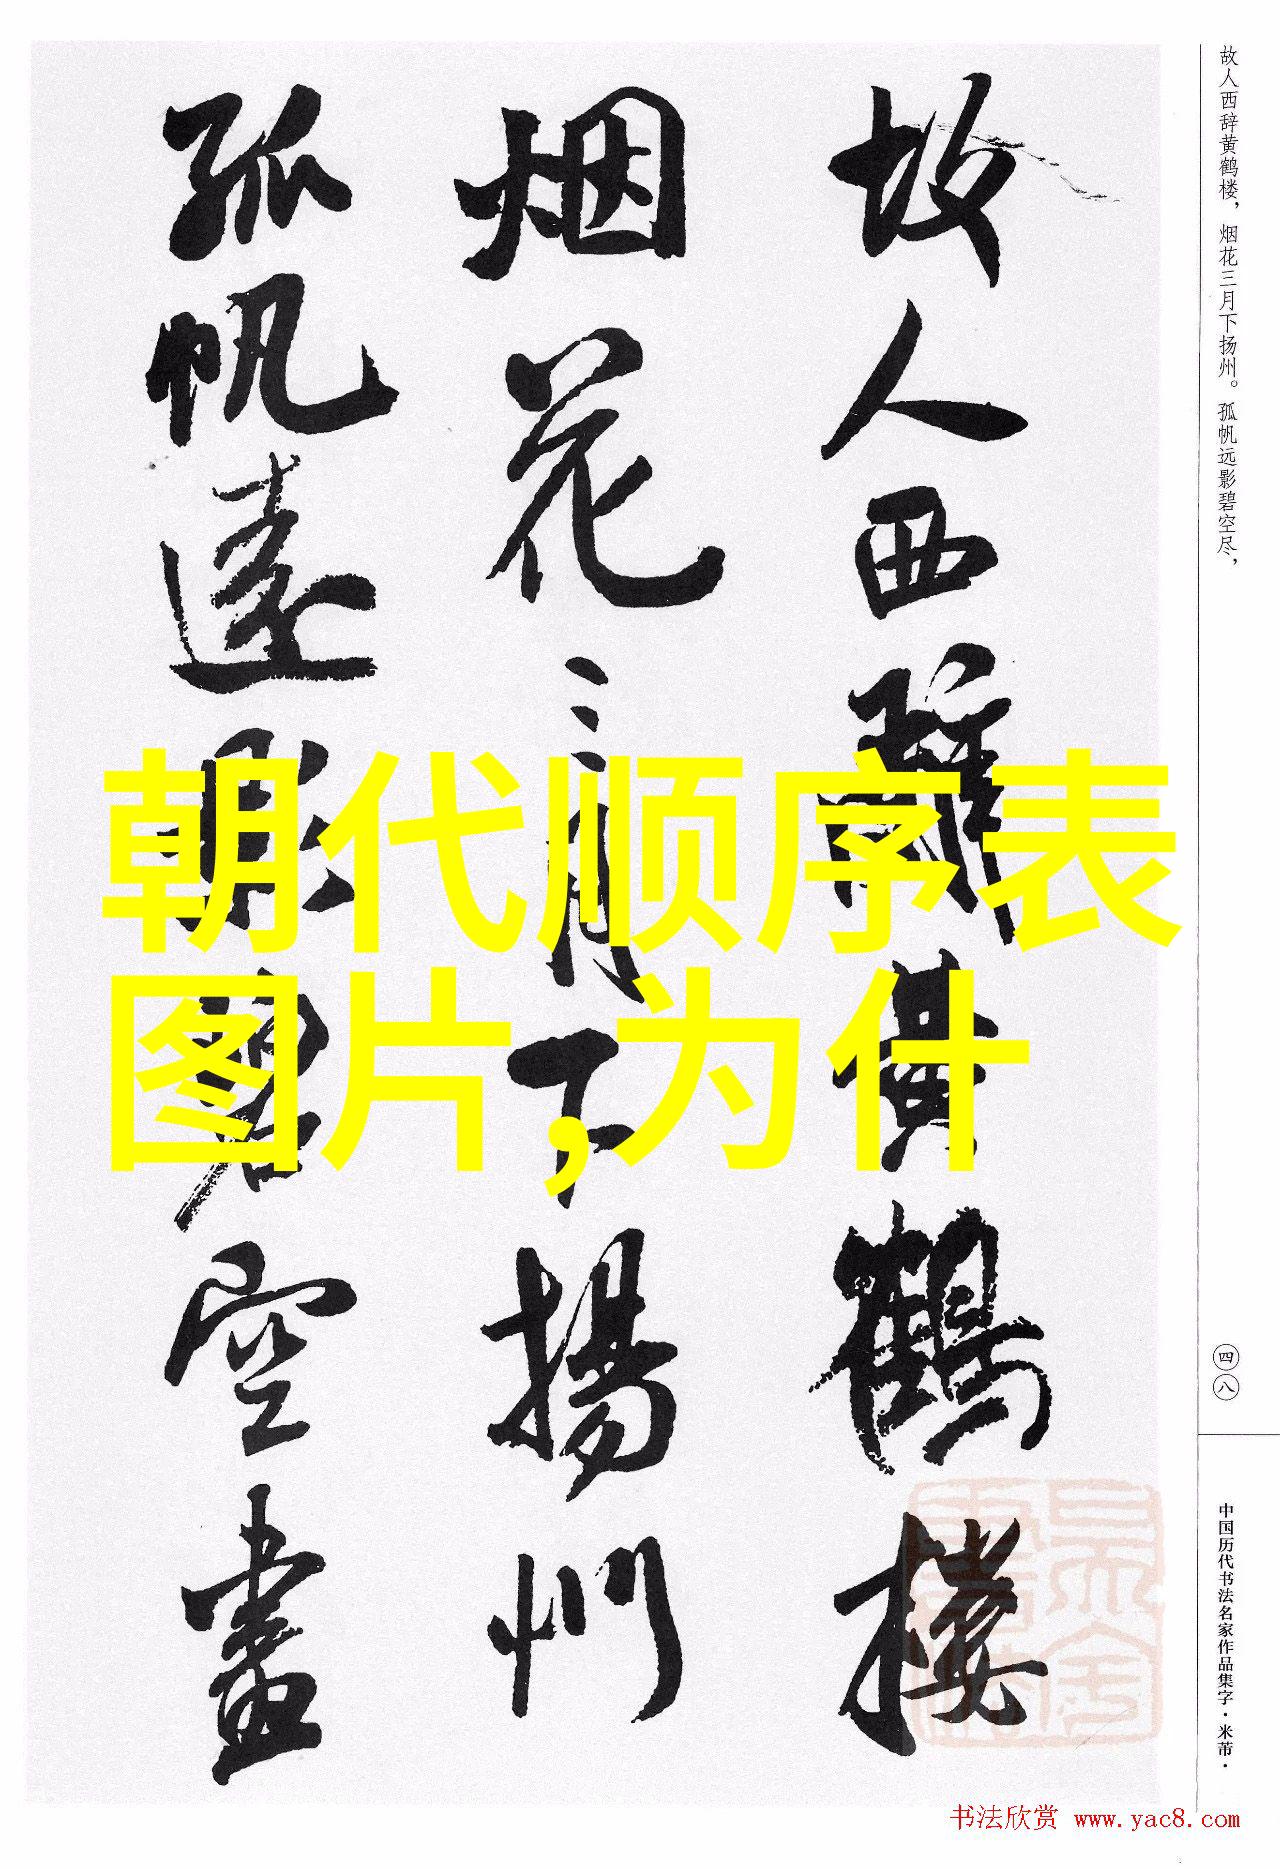 故人西辞黄鹤楼，烟花三月下扬州。孤帆远影碧空尽，
故人西辭黄鹤樓
烟花三月下揚州
孤帆遠影碧空盡
朝代顺序表
图片,为什
四八
中国历代书法名家作品集字·米芾·
书法欣赏 www.yac8.com